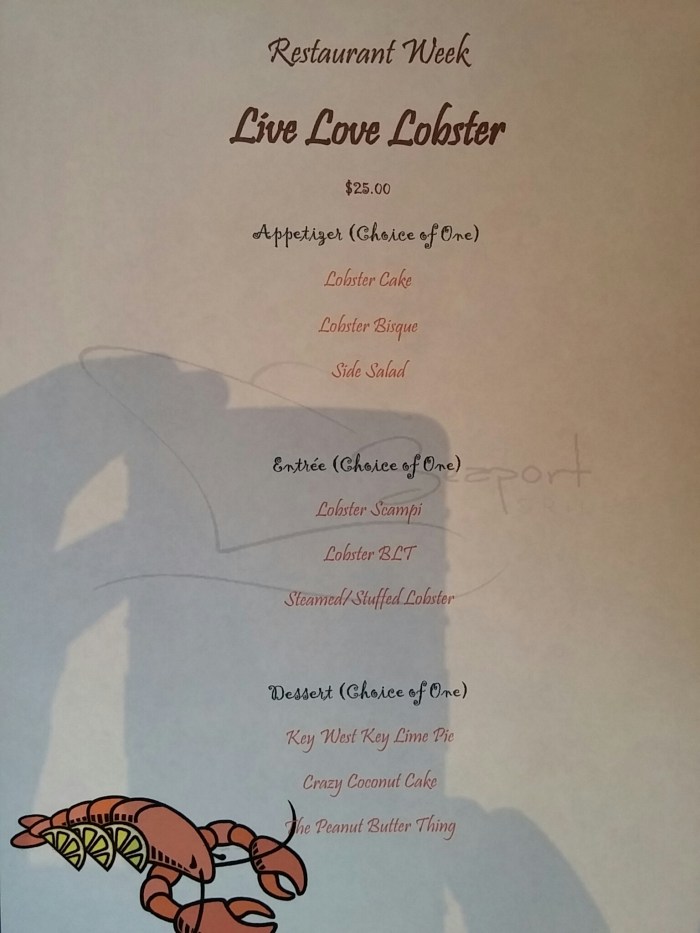 Restaurant Week
Live Love Lobster
$25.00
Appetizer (Choice of One)
Lobster Cake
Lobster Bisque
Side Salad
Entrée (Choice of One)
Seaport
Lobster Scampi
Lobster BLT
Steamed/Stuffed Lobster
Dessert (Choice of One)
Key West Key Lime Pie
Crazy Coconut Cake
The Peanut Butter Thing